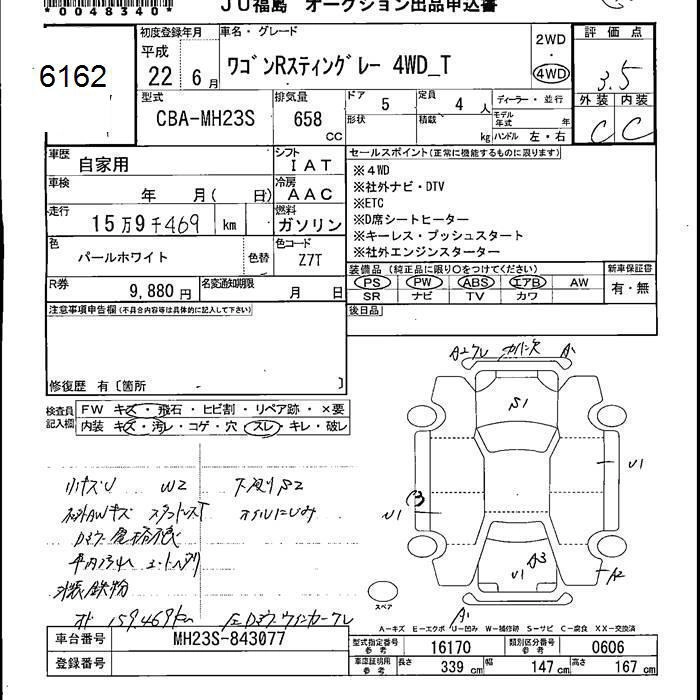 *0048340*
JU福島 オークション出品申込書
6162
初度登録年月
平成
22 6月
車名・グレード
ワゴンRスティングレー 4WD_T
2WD
4WD
評価点
3.5
外装 内装
C C
型式
CBA-MH23S
排気量
658
CC
ドア 5
定員 4 人
ディーラー・並行
形状
積載 kg
モデル年式 年
ハンドル 左・右
車歴
自家用
シフト
IAT
車検
年 月( 日)
冷房
AAC
走行
15万9千469 km
燃料
ガソリン
色
パールホワイト
色替
色コード
Z7T
R券
9,880 円
名変通知期限
月 日
セールスポイント(正常に機能するものに限ります)
※4WD
※社外ナビ・DTV
※ETC
※D席シートヒーター
※キーレス・プッシュスタート
※社外エンジンスターター
装備品 (純正品に限り○をつけてください)
PS PW ABS エアB AW
SR ナビ TV カワ
新車保証書
有・無
後日品
注意事項申告欄(不具合内容等は具体的に記入して下さい)
修復歴 有〔箇所 〕
検査員記入欄
FW キズ・飛石・ヒビ割・リペア跡・×要
内装 キズ・汚レ・コゲ・穴・スレ・キレ・破レ
小キズU W2 下廻りS2
社外AWキズ オイルにじみ
159.469km
A2 A1
S1
U1
U1
A3
U1
A2
A1
スペア
A-キズ E-エクボ U-凹み W-補修跡 S-サビ C-腐食 XX-交換済
車台番号 MH23S-843077
登録番号
型式指定番号 参考 16170
類別区分番号 参考 0606
車庫証明用 参考 長さ 339 cm 幅 147 cm 高さ 167 cm